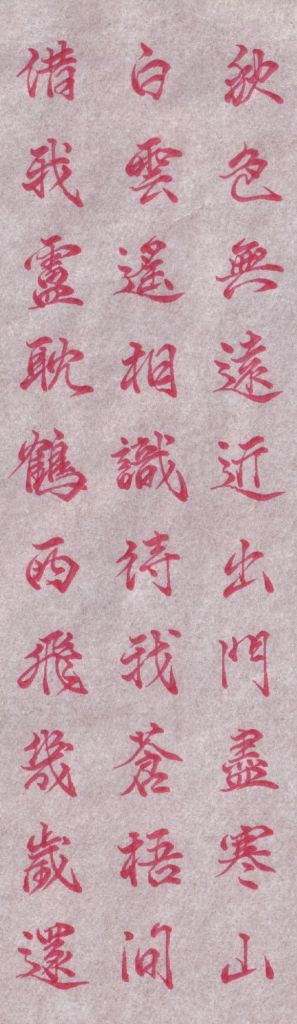 秋色無遠近出門盡寒山
白雲遙相識待我蒼梧間
借我盧耽鶴西飛幾歲還